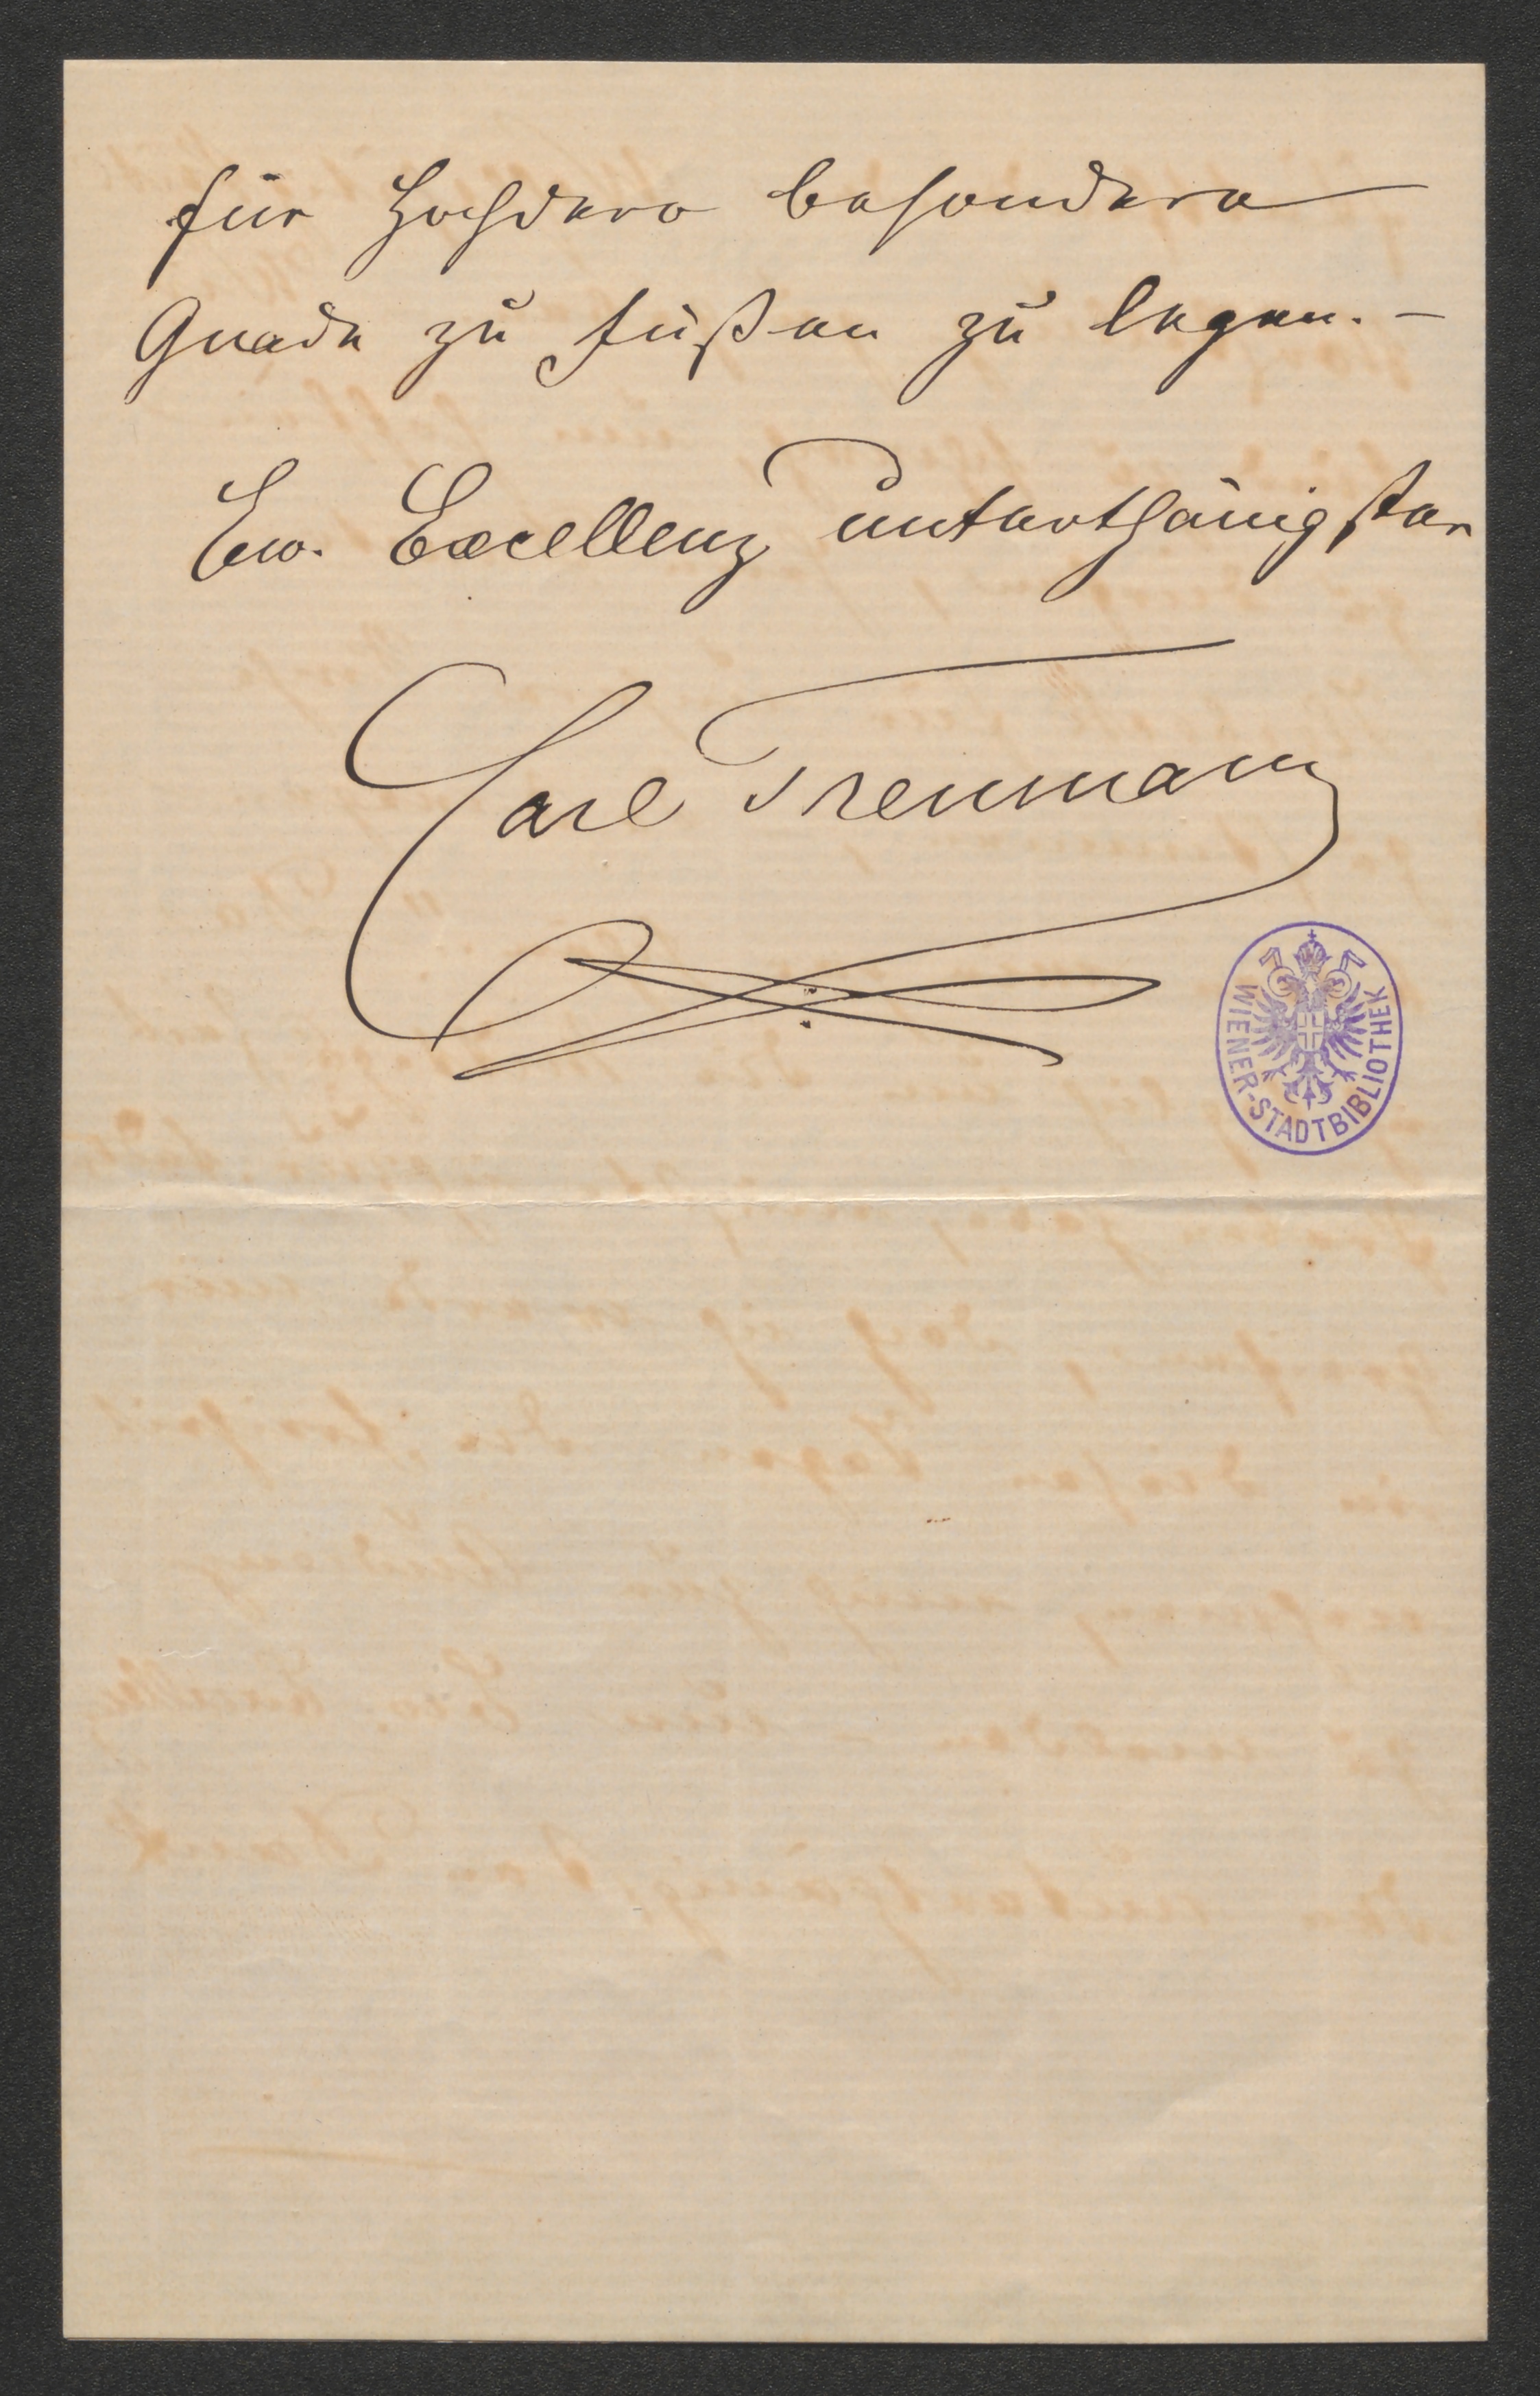 für Hochdero besondere
Gnade zu Füßen zu legen. –
Ew. Excellenz unterthänigster
Carl Treumann
WIENER-STADTBIBLIOTHEK